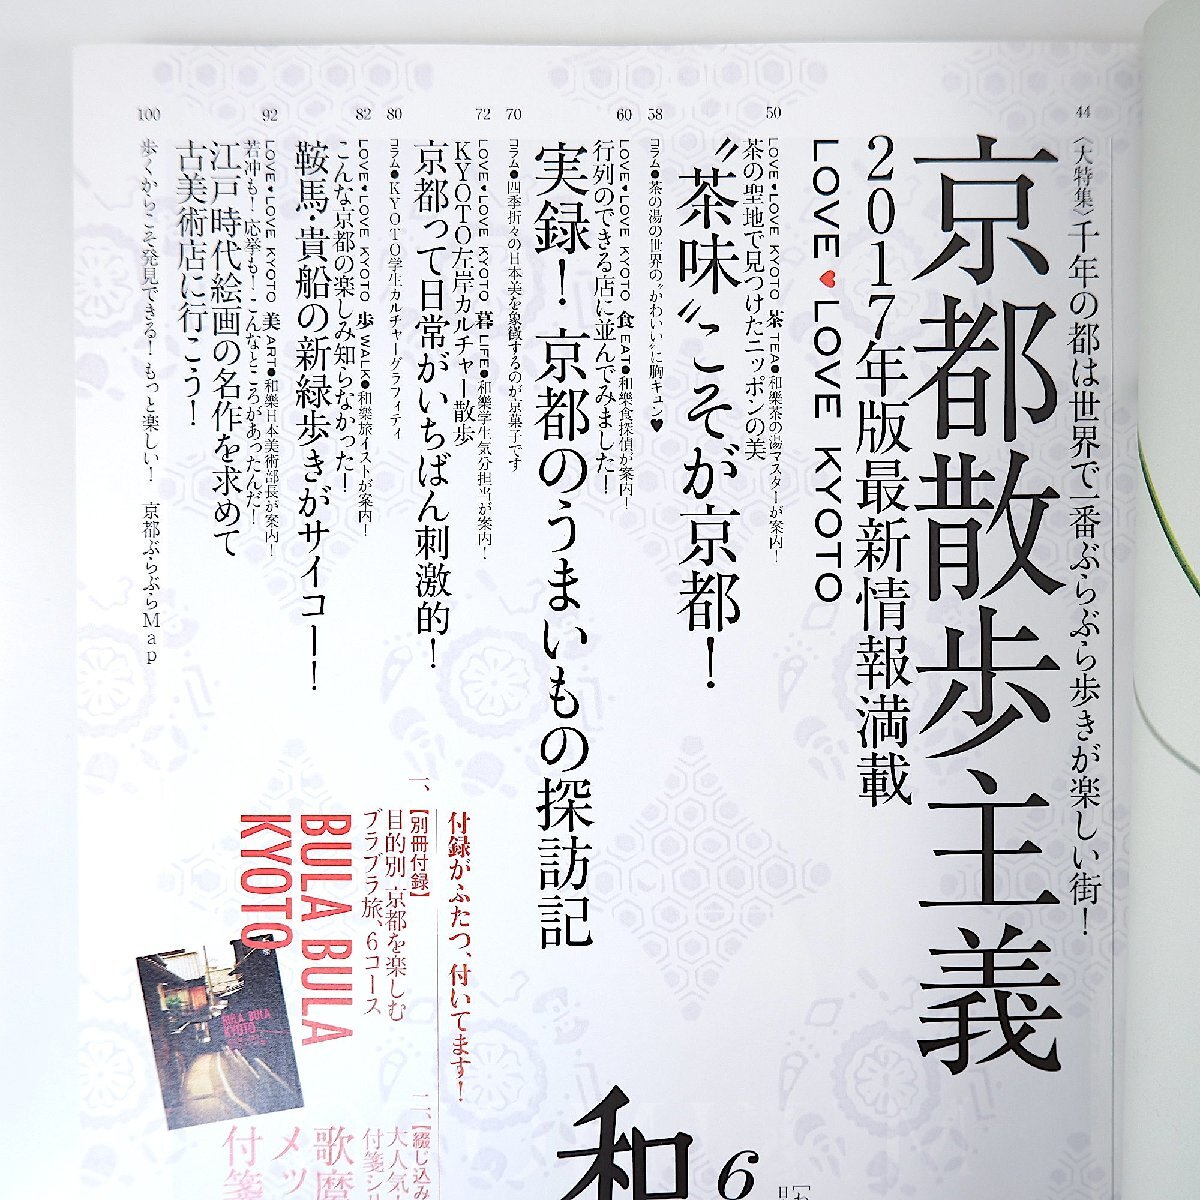 44
〈大特集〉千年の都は世界で一番ぶらぶら歩きが楽しい街!
京都散歩主義
2017年版最新情報満載
LOVE♥LOVE KYOTO
50
LOVE♥LOVE KYOTO 茶 TEA●和樂茶の湯マスターが案内!
茶の聖地で見つけたニッポンの美
“茶味”こそが京都!
58
コラム●茶の湯の世界の“かわいい”に胸キュン♥
60
LOVE♥LOVE KYOTO 食 EAT●和樂食探偵が案内!
行列のできる店に並んでみました!
実録! 京都のうまいもの探訪記
70
コラム●四季折々の日本美を象徴するのが京菓子です
72
LOVE♥LOVE KYOTO 暮 LIFE●和樂学生気分担当が案内!
KYOTO左岸カルチャー散歩
京都って日常がいちばん刺激的!
80
コラム●KYOTO学生カルチャーグラフィティ
82
LOVE♥LOVE KYOTO 歩 WALK●和樂旅イストが案内!
こんな京都の楽しみ知らなかった!
鞍馬・貴船の新緑歩きがサイコー!
92
LOVE♥LOVE KYOTO 美 ART●和樂日本美術部長が案内!
若冲も!応挙も!こんなところがあったんだ!
江戸時代絵画の名作を求めて
古美術店に行こう!
100
歩くからこそ発見できる!もっと楽しい! 京都ぶらぶらMap
付録がふたつ、付いてます!
一、【別冊付録】
目的別 京都を楽しむ
ブラブラ旅、6コース
BULA BULA
KYOTO
BULA BULA
KYOTO
二、【綴じ込み
大人気
付箋シリ
歌麿
メッ
付箋
和
6